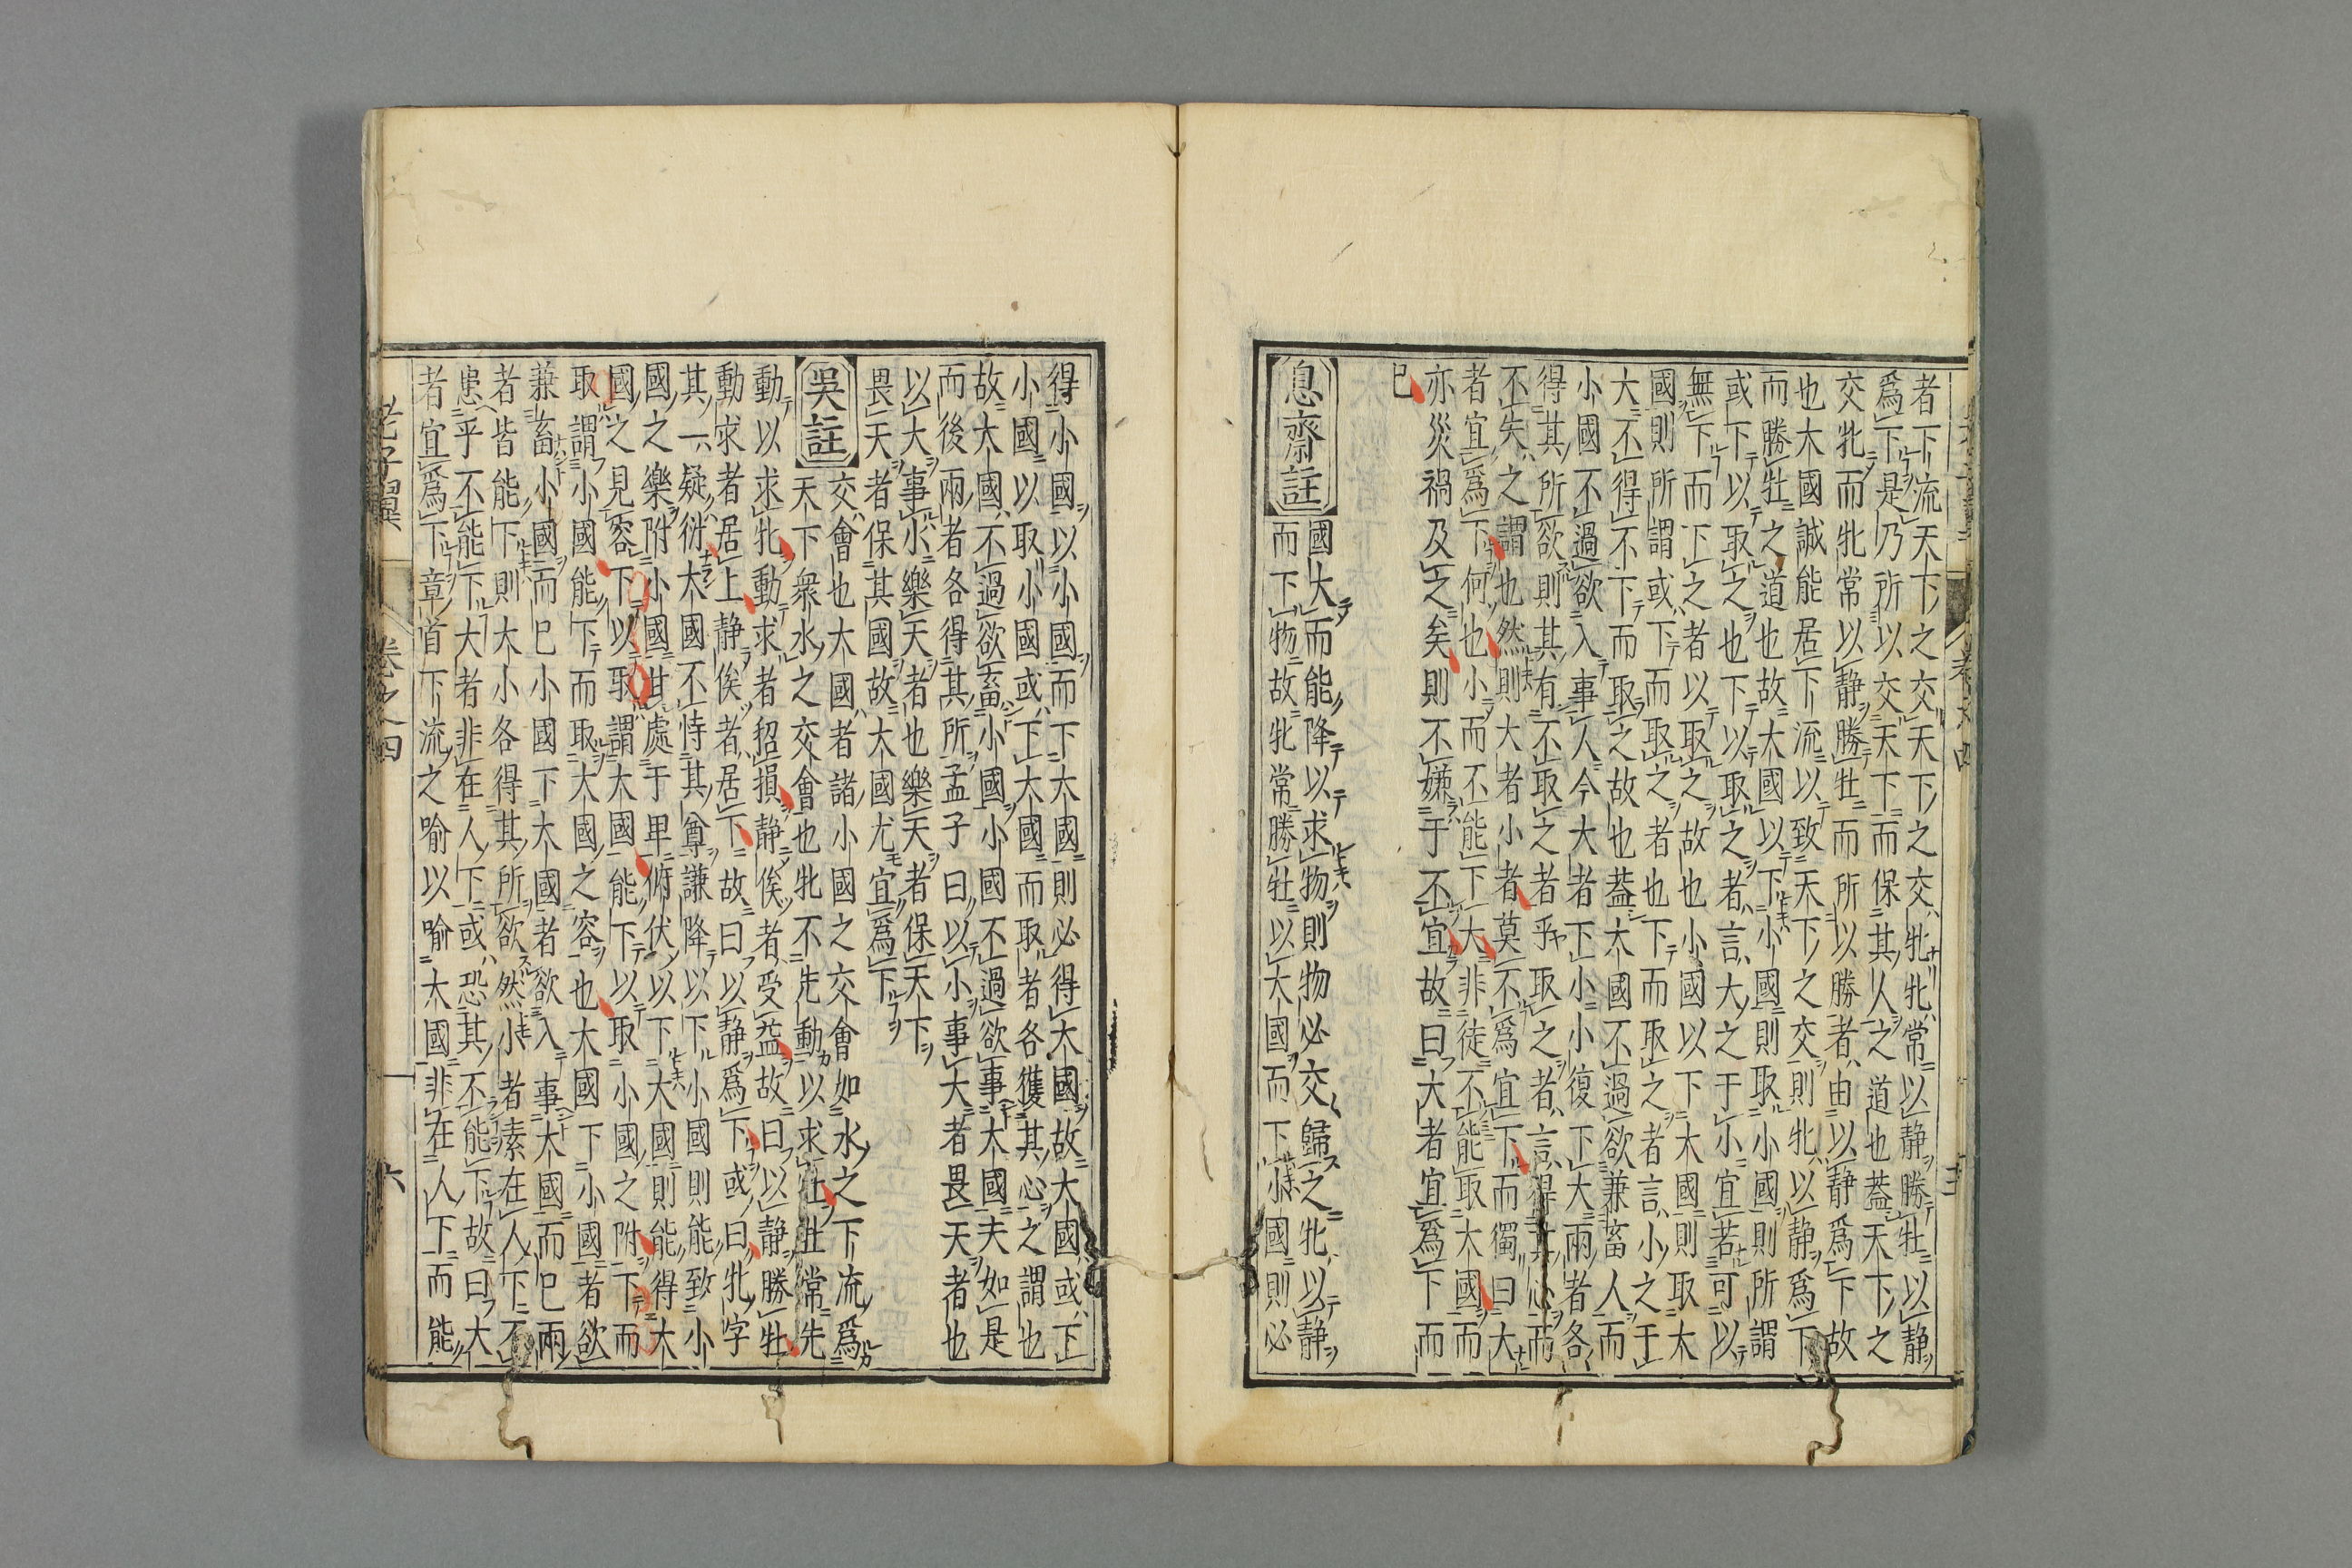 者下流天下之交天下之交牝牝常以静勝牡以静
爲下是乃所以交天下而保其人之道也葢天下之
交牝而牝常以静勝牡而所以勝者由以静爲下故
也大國誠能居下流以致天下之交則牝以静爲下
而勝牡之道也故大國以下小國則取小國則所謂
或下以取之也下以取之者言大之于小宜若可以
無下而下之者以取之故也小國以下大國則取大
國則所謂或下而取之者也下而取之者言小之于
大不得不下而取之故也葢大國不過欲兼畜人而
小國不過欲入事人今大者下小小復下大兩者各
得其所欲則其有不取之者乎取之者言得其心而
不失之謂也然則大者小者莫不爲宜下而獨曰大
者宜爲下何也小而不能下大非徒不能取大國而
亦災禍及之矣則不嫌于不宜故曰大者宜爲下而
已
息齋註
國大而能降以求物則物必交歸之牝以静
而下物故牝常勝牡以大國而下小國則必
得小國以小國而下大國則必得大國故大國或下
小國以取小國或下大國而取者各獲其心之謂也
故大國不過欲畜小國小國不過欲事大國夫如是
而後兩者各得其所孟子曰以小事大者畏天者也
以大事小樂天者也樂天者保天下
畏天者保其國故大國尤宜爲下
吳註
交會也大國者諸小國之交會如水之下流爲
天下衆水之交會也牝不先動以求牡牡常先
動以求牝動求者招損静俟者受益故曰以静勝牡
動求者居上静俟者居下故曰以静爲下或曰牝字
其一疑衍大國不恃其尊謙降以下小國則能致小
國之樂附小國甘處于卑俯伏以下大國則能得大
國之見容下以取謂大國能下以取小國之附下而
取謂小國能下而取大國之容也大國下小國者欲
兼畜小國而已小國下大國者欲入事大國而已兩
者皆能下則大小各得其所欲然小者素在人下不
患乎不能下大者非在人下或恐其不能下故曰大
者宜爲下章首下流之喻以喻大國非在人下而能
老子翼
卷之四
六